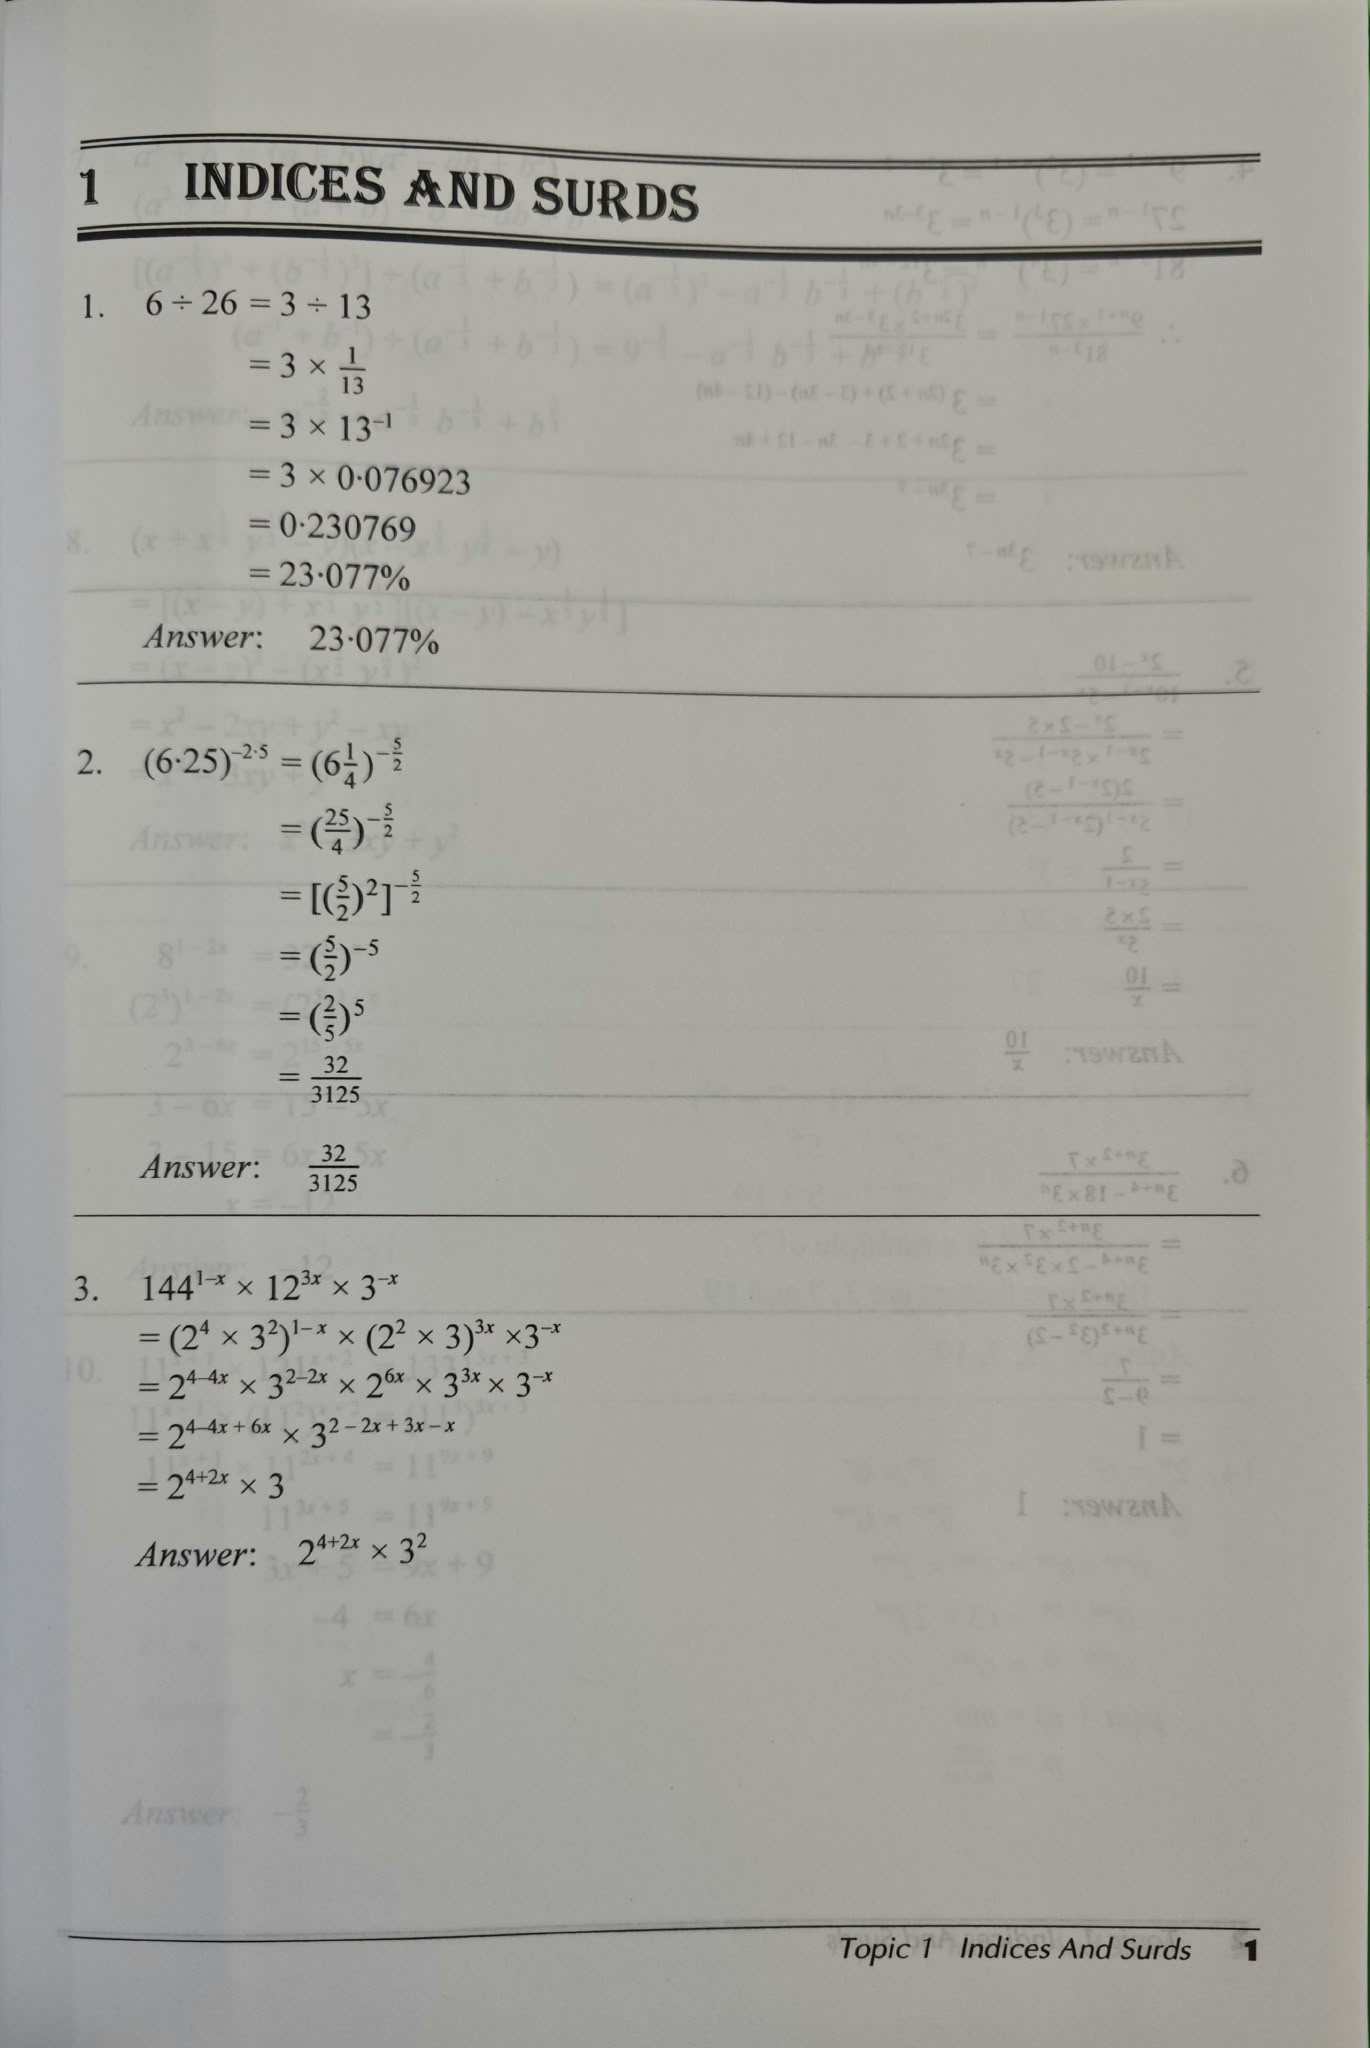 1 INDICES AND SURDS
1. 6 ÷ 26 = 3 ÷ 13
= 3 × 1/13
= 3 × 13⁻¹
= 3 × 0·076923
= 0·230769
= 23·077%
Answer: 23·077%
2. (6·25)^(−2·5) = (6 1/4)^(−5/2)
= (25/4)^(−5/2)
= [(5/2)²]^(−5/2)
= (5/2)⁻⁵
= (2/5)⁵
= 32/3125
Answer: 32/3125
3. 144^(1−x) × 12^(3x) × 3^(−x)
= (2⁴ × 3²)^(1−x) × (2² × 3)^(3x) ×3^(−x)
= 2^(4−4x) × 3^(2−2x) × 2^(6x) × 3^(3x) × 3^(−x)
= 2^(4−4x + 6x) × 3^(2 − 2x + 3x − x)
= 2^(4+2x) × 3
Answer: 2^(4+2x) × 3²
Topic 1 Indices And Surds 1